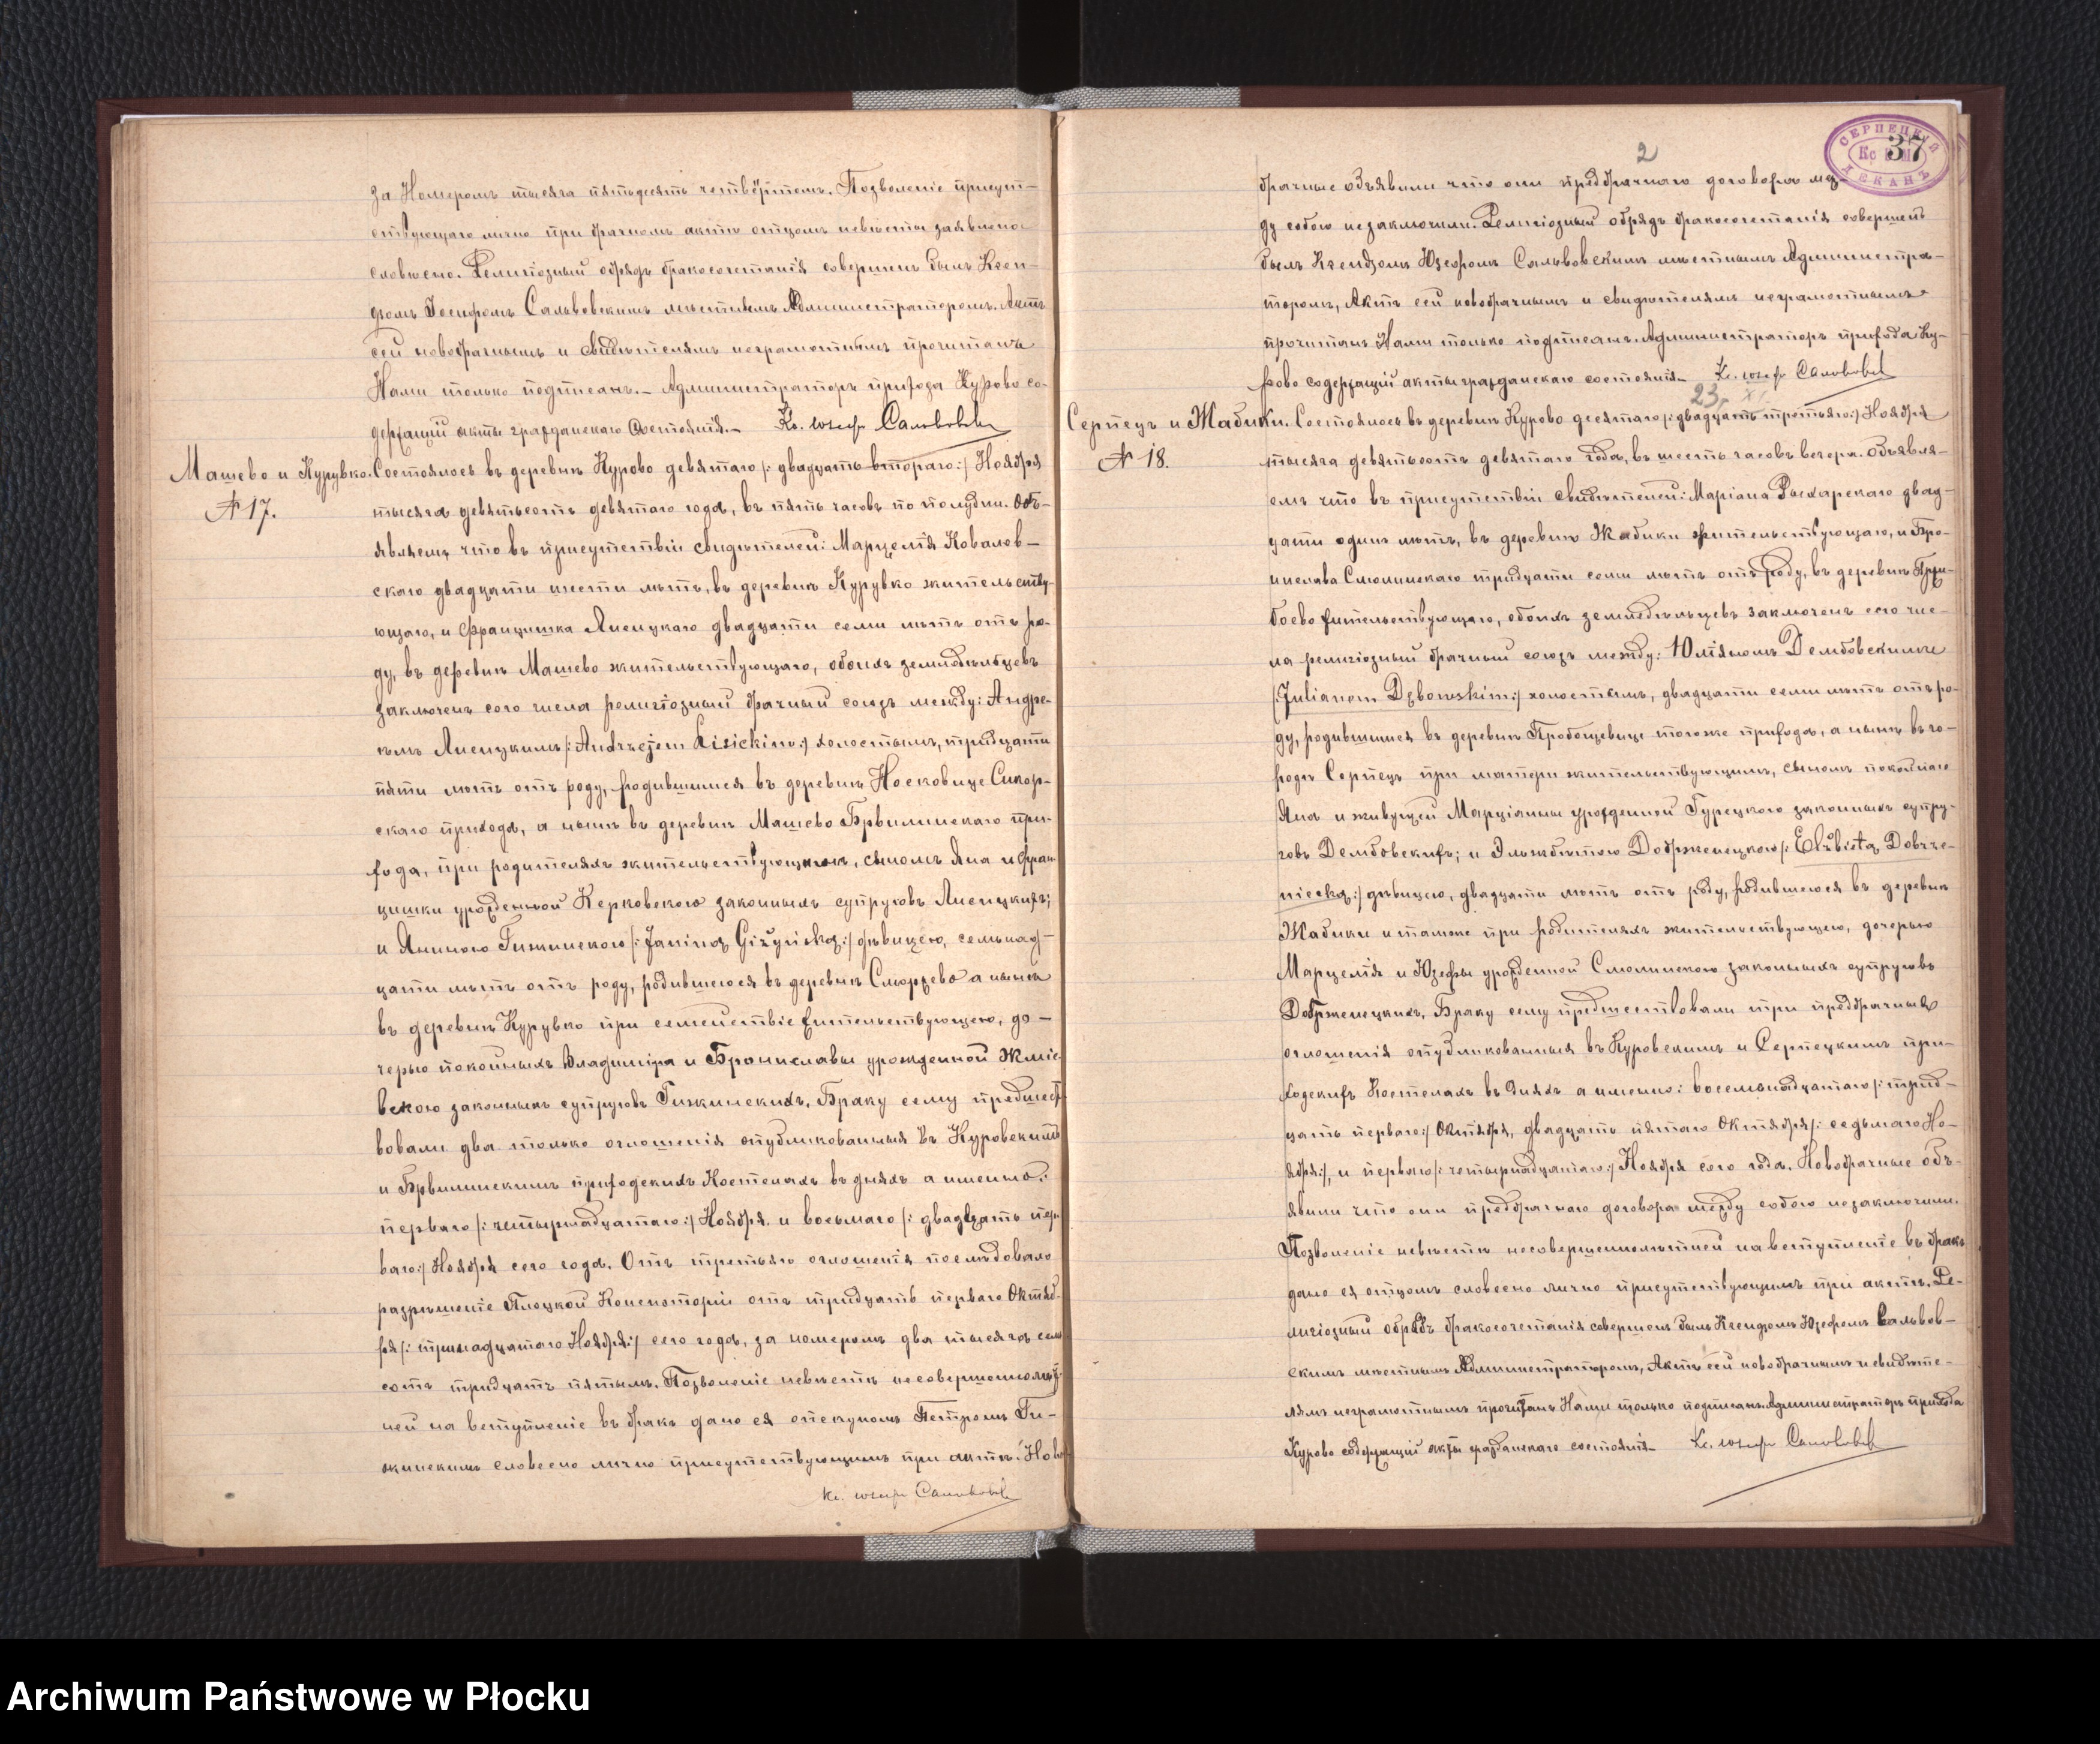 за Номеромъ тысяча пятьдесятъ четвёртымъ. Позволеніе присут-
ствующаго лично при брачномъ актѣ отцомъ невѣсты заявлено
словесно. Религіозный обрядъ бракосочетанія совершенъ былъ Ксен-
дзомъ Іосифомъ Сальковскимъ мѣстнымъ Администраторомъ. Актъ
сей новобрачнымъ и свидѣтелямъ неграмотнымъ прочитанъ
Нами только подписанъ.- Администраторъ прихода Курово со-
держащій акты гражданскаго состоянія.-
Машево и Курувко.
№ 17.
Состоялось въ деревнѣ Курово девятаго /: двадцать втораго :/ Ноября
тысяча девятьсотъ девятаго года, въ пять часовъ по полудни. Объ-
являемъ что въ присутствіи свидѣтелей: Марцелія Ковалев-
скаго двадцати шести лѣтъ, въ деревнѣ Курувко жительству-
ющаго, и Францишка Лисицкаго двадцати семи лѣтъ отъ ро-
ду, въ деревнѣ Машево жительствующаго, обоихъ земледѣльцевъ
заключенъ сего числа религіозный брачный союзъ между: Андре-
емъ Лисицкимъ /: Andrzejem Lisickim :/ холостымъ, тридцати
пяти лѣтъ отъ роду, родившимся въ деревнѣ Носковице Сикор-
скаго прихода, а нынѣ въ деревнѣ Машево Брвилинскаго при-
хода, при родителяхъ жительствующимъ, сыномъ Яна и Фран-
цишки урожденной Керковскою законныхъ супруговъ Лисицкихъ;
и Яниною Гижинскою /: Janiną Giżyńską :/ дѣвицею, семьнад-
цати лѣтъ отъ роду, родившеюся въ деревнѣ Сморжево а нынѣ
въ деревнѣ Курувко при семействѣ жительствующею, до-
черью покойныхъ Владиміра и Брониславы урожденной Жміе-
вскою законныхъ супруговъ Гижинскихъ. Браку сему предшест-
вовали два только оглошенія опубликованныя въ Куровскимъ
и Брвилинскимъ приходскихъ Костелахъ въ дняхъ а именно:
перваго /: четырнадцатаго :/ Ноября и восьмаго /: двадцать пер-
ваго :/ Ноября сего года. Отъ третьяго оглошенія послѣдовало
разрѣшеніе Плоцкой Консисторіи отъ тридцать перваго Октяб-
ря /: тринадцатаго Ноября :/ сего года, за номеромъ два тысяча семь
сотъ тридцать пятымъ. Позволеніе невѣстѣ несовершеннолѣт-
ней на вступленіе въ бракъ дано ея опекуномъ Петромъ Ги-
жинскимъ словесно лично присутствующимъ при актѣ. Ново-
2
37
СЕРПЕЦКІЙ
ДЕКАНЪ
брачные объявили что они предбрачнаго договора меж-
ду собою незаключили. Религіозный обрядъ бракосочетанія совершенъ
былъ Ксендзомъ Юзефомъ Сальковскимъ мѣстнымъ Администра-
торомъ, Актъ сей новобрачнымъ и свидѣтелямъ неграмотнымъ
прочитанъ Нами только подписанъ. Администраторъ прихода Ку-
рово содержащій акты гражданскаго состоянія.-
23
Серпецъ и Жабики.
№ 18.
Состоялось въ деревнѣ Курово десятаго /: двадцать третьяго :/ Ноября
тысяча девятьсотъ девятаго года, въ шесть часовъ вечера. Объявля-
емъ что въ присутствіи свидѣтелей: Маріана двад-
цати одинъ лѣтъ, въ деревнѣ Жабики жительствующаго, и Бро-
нислава Смолинскаго тридцати семи лѣтъ отъ роду, въ деревнѣ
жительствующаго, обоихъ земледѣльцевъ заключенъ сего чис-
ла религіозный брачный союзъ между: Юліяномъ Дембовскимъ
/: Julianem Dębowskim :/ холостымъ, двадцати семи лѣтъ отъ ро-
ду, родившимся въ деревнѣ Пробощевице тогоже прихода, а нынѣ въ го-
родѣ Серпецъ при матери жительствующимъ, сыномъ покойнаго
Яна и живущей Марціанны урожденной Турецкою законныхъ супру-
говъ Дембовскихъ; и Эльжбѣтою Добрженецкою /: Elżbietą Dobrze-
niecką :/ дѣвицею, двадцати лѣтъ отъ роду, родившеюся въ деревнѣ
Жабики и тамже при родителяхъ жительствующею, дочерью
Марцелія и Юзефы урожденной Смолинскою законныхъ супруговъ
Добрженецкихъ. Браку сему предшествовали три предбрачныя
оглошенія опубликованныя въ Куровскимъ и Серпецкимъ при-
ходскихъ Костелахъ въ дняхъ а именно: восемьнадцатаго /: трид-
цать перваго :/ Октября, двадцать пятаго Октября /: седьмаго Но-
ября :/, и перваго /: четырнадцатаго :/ Ноября сего года. Новобрачные объ-
явили что они предбрачнаго договора между собою незаключили.
Позволеніе невѣстѣ несовершеннолѣтней на вступленіе въ бракъ
дано ея отцомъ словесно лично присутствующимъ при актѣ. Ре-
лигіозный обрядъ бракосочетанія совершенъ былъ Ксендзомъ Юзефомъ Сальков-
скимъ мѣстнымъ Администраторомъ, Актъ сей новобрачнымъ и свидѣте-
лямъ неграмотнымъ прочитанъ Нами только подписанъ. Администраторъ прихода
Курово содержащій акты гражданскаго состоянія.-
Archiwum Państwowe w Płocku